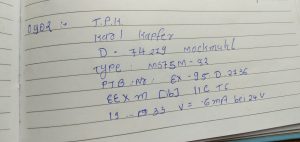 0902 :- T.P.H
Karl Kapfer
D - 74219 Mockmuhl
Type : MS75M - 32
PTB. Nr: EX - 95 D 2136
EEX m [ib] IIC T6
V = 6mA bei 24V